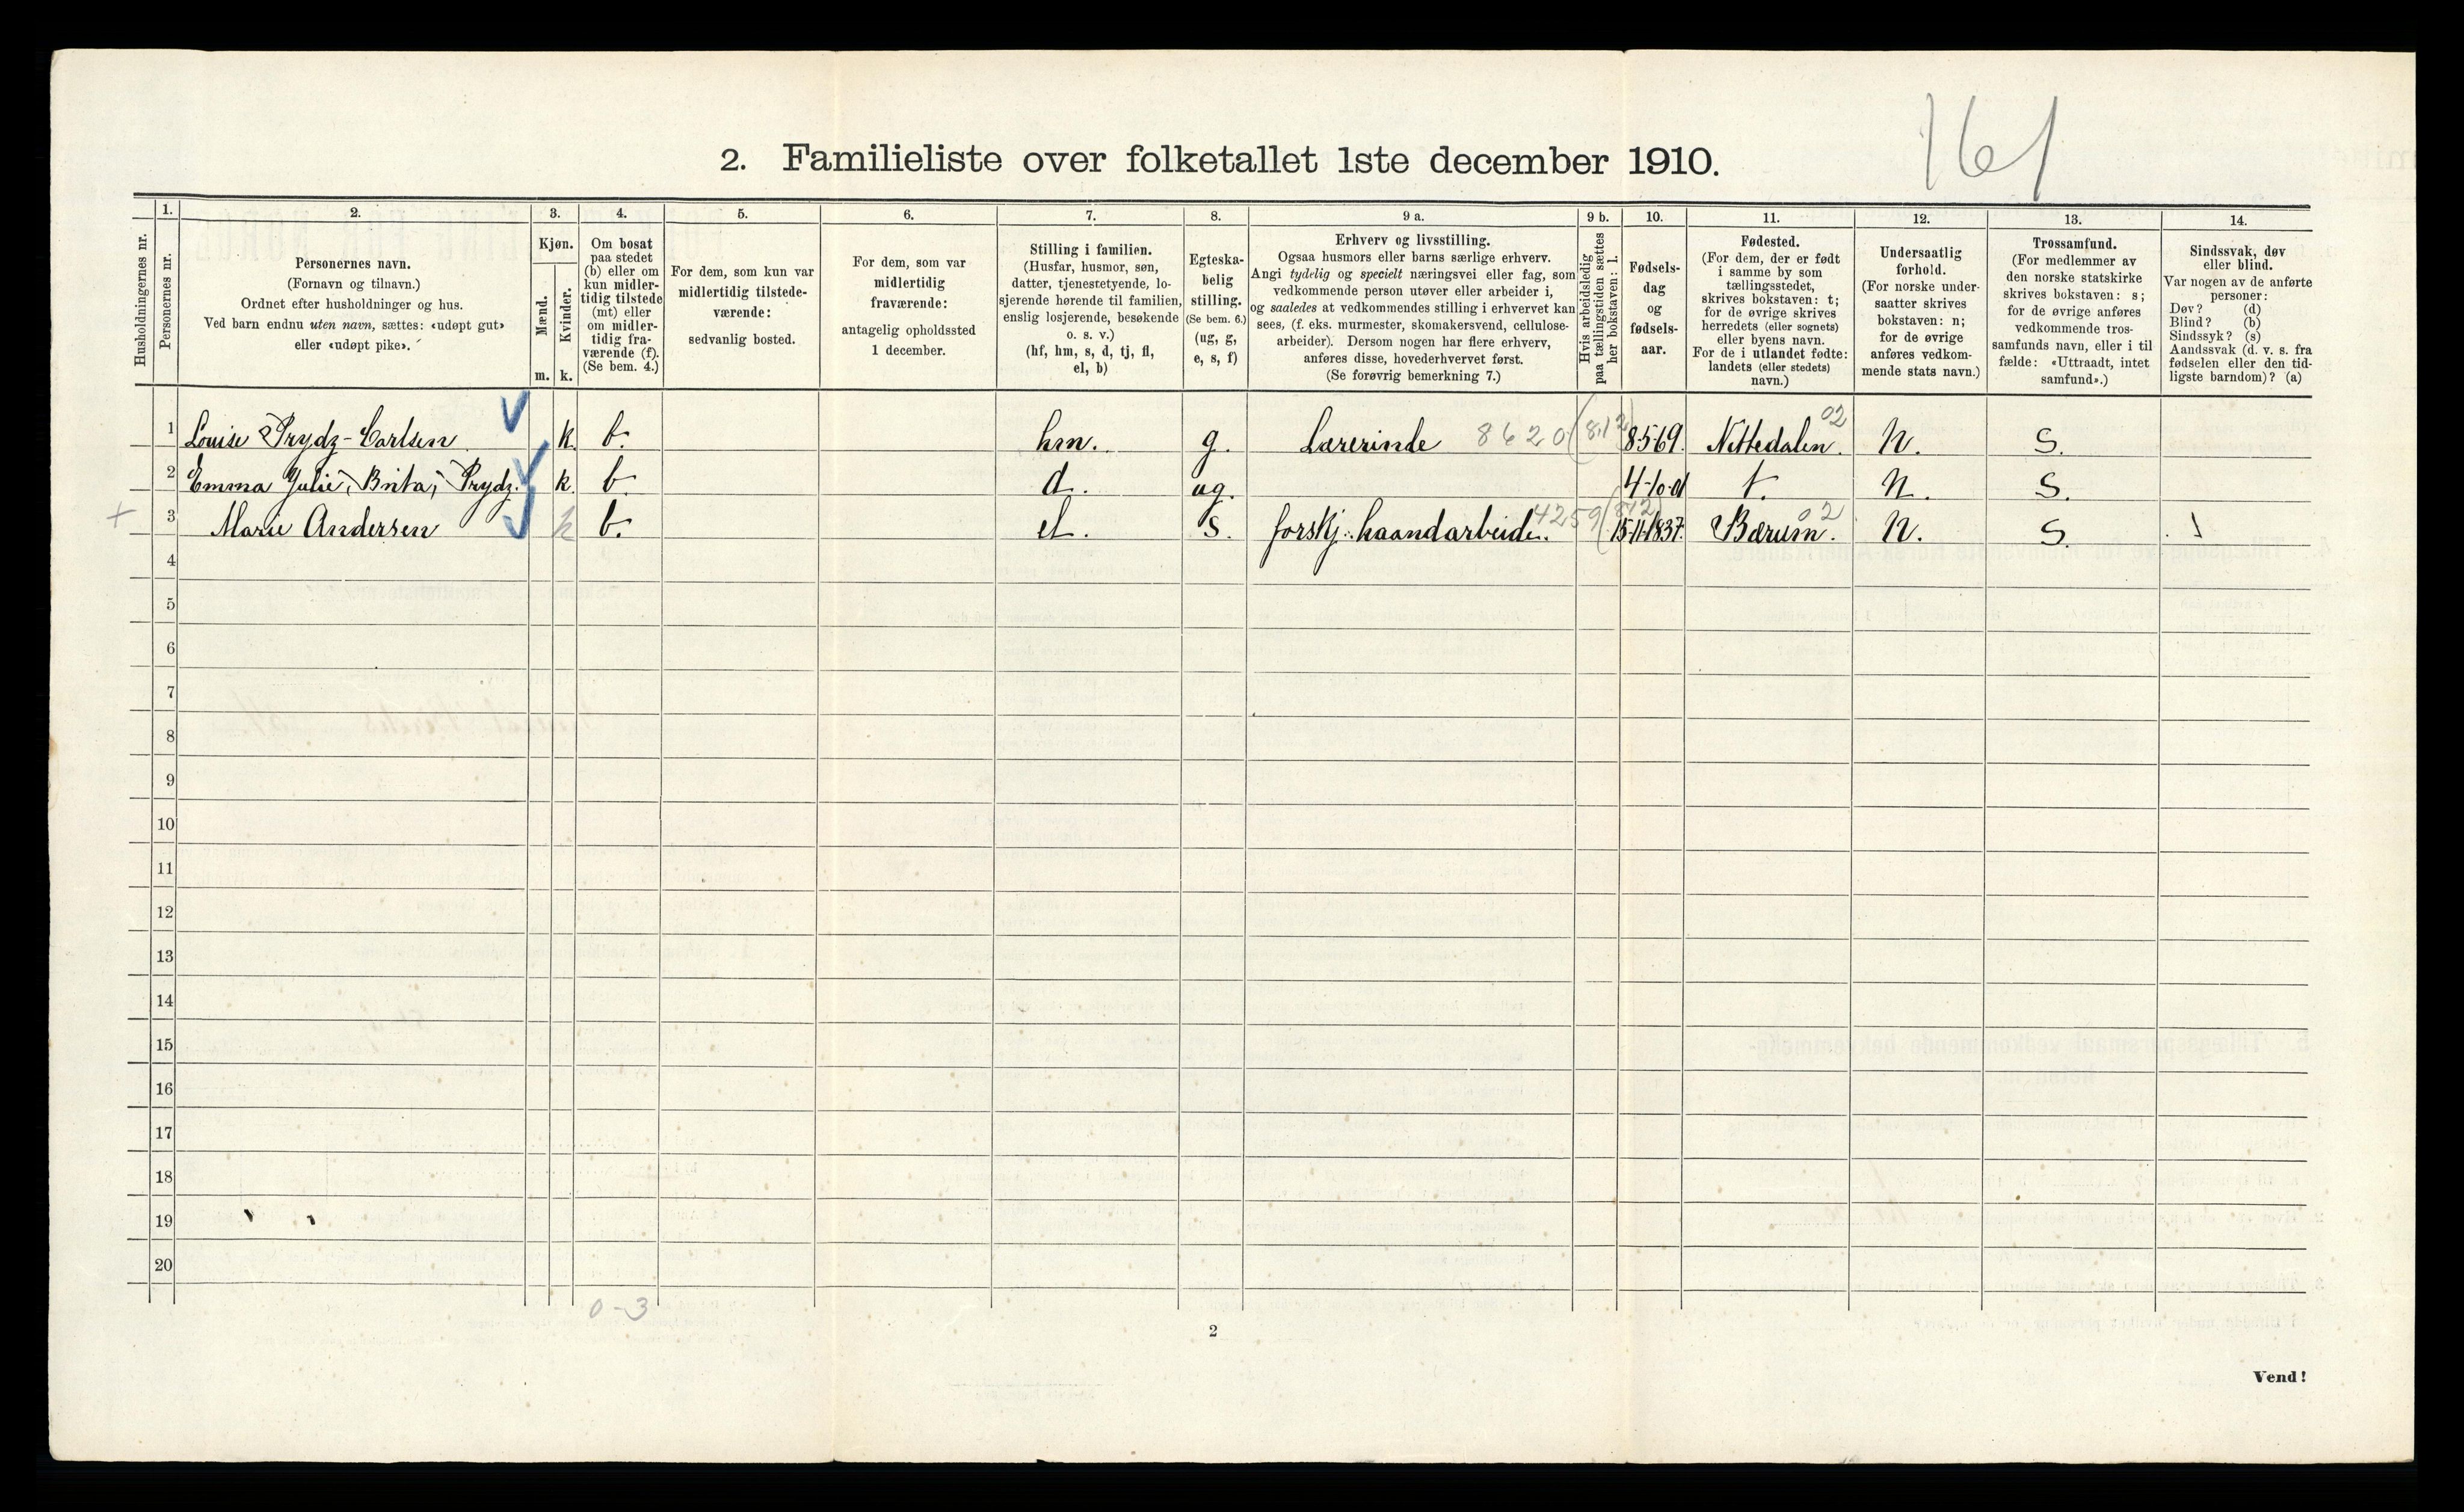 161
2. Familieliste over folketallet 1ste december 1910.
1. 2. 3. 4. 5. 6. 7. 8. 9 a. 9 b. 10. 11. 12. 13. 14.
Husholdningernes nr.
Personernes nr.
Personernes navn.
(Fornavn og tilnavn.)
Ordnet efter husholdninger og hus.
Ved barn endnu uten navn, sættes: «udøpt gut»
eller «udøpt pike».
Kjøn.
Mænd.
Kvinder.
m. k.
Om bosat
paa stedet
(b) eller om
kun midler-
tidig tilstede
(mt) eller
om midler-
tidig fra-
værende (f).
(Se bem. 4.)
For dem, som kun var
midlertidig tilstede-
værende:
sedvanlig bosted.
For dem, som var
midlertidig
fraværende:
antagelig opholdssted
1 december.
Stilling i familien.
(Husfar, husmor, søn,
datter, tjenestetyende, lo-
sjerende hørende til familien,
enslig losjerende, besøkende
o. s. v.)
(hf, hm, s, d, tj, fl,
el, b)
Egteska-
belig
stilling.
(Se bem. 6.)
(ug, g,
e, s, f)
Erhverv og livsstilling.
Ogsaa husmors eller barns særlige erhverv.
Angi tydelig og specielt næringsvei eller fag, som
vedkommende person utøver eller arbeider i,
og saaledes at vedkommendes stilling i erhvervet kan
sees, (f. eks. murmester, skomakersvend, cellulose-
arbeider). Dersom nogen har flere erhverv,
anføres disse, hovederhvervet først.
(Se forøvrig bemerkning 7.)
Hvis arbeidsledig
paa tællingstiden sættes
her bokstaven: l.
Fødsels-
dag
og
fødsels-
aar.
Fødested.
(For dem, der er født
i samme by som
tællingsstedet,
skrives bokstaven: t;
for de øvrige skrives
herredets (eller sognets)
eller byens navn.
For de i utlandet fødte:
landets (eller stedets)
navn.)
Undersaatlig
forhold.
(For norske under-
saatter skrives
bokstaven: n;
for de øvrige
anføres vedkom-
mende stats navn.)
Trossamfund.
(For medlemmer av
den norske statskirke
skrives bokstaven: s;
for de øvrige anføres
vedkommende tros-
samfunds navn, eller i til
fælde: «Uttraadt, intet
samfund».)
Sindssvak, døv
eller blind.
Var nogen av de anførte
personer:
Døv? (d)
Blind? (b)
Sindssyk? (s)
Aandssvak (d. v. s. fra
fødselen eller den tid-
ligste barndom)? (a)
1 Louise Prydz-Carlsen k. b. hm. g. Lærerinde 8620 (812 8-5-69. Nittedalen. 02 N. S.
2 Emma Julie, Brita, Prydz. k. b. d. ug. 4-10-01 t. N. S.
+ 3 Marie Andersen k b. el. s. forskj. haandarbeide. 4259 (812) 15-11-1837. Bærum. 02 N. S.
4
5
6
7
8
9
10
11
12
13
14
15
16
17
18
19
20
0-3
2
Vend!